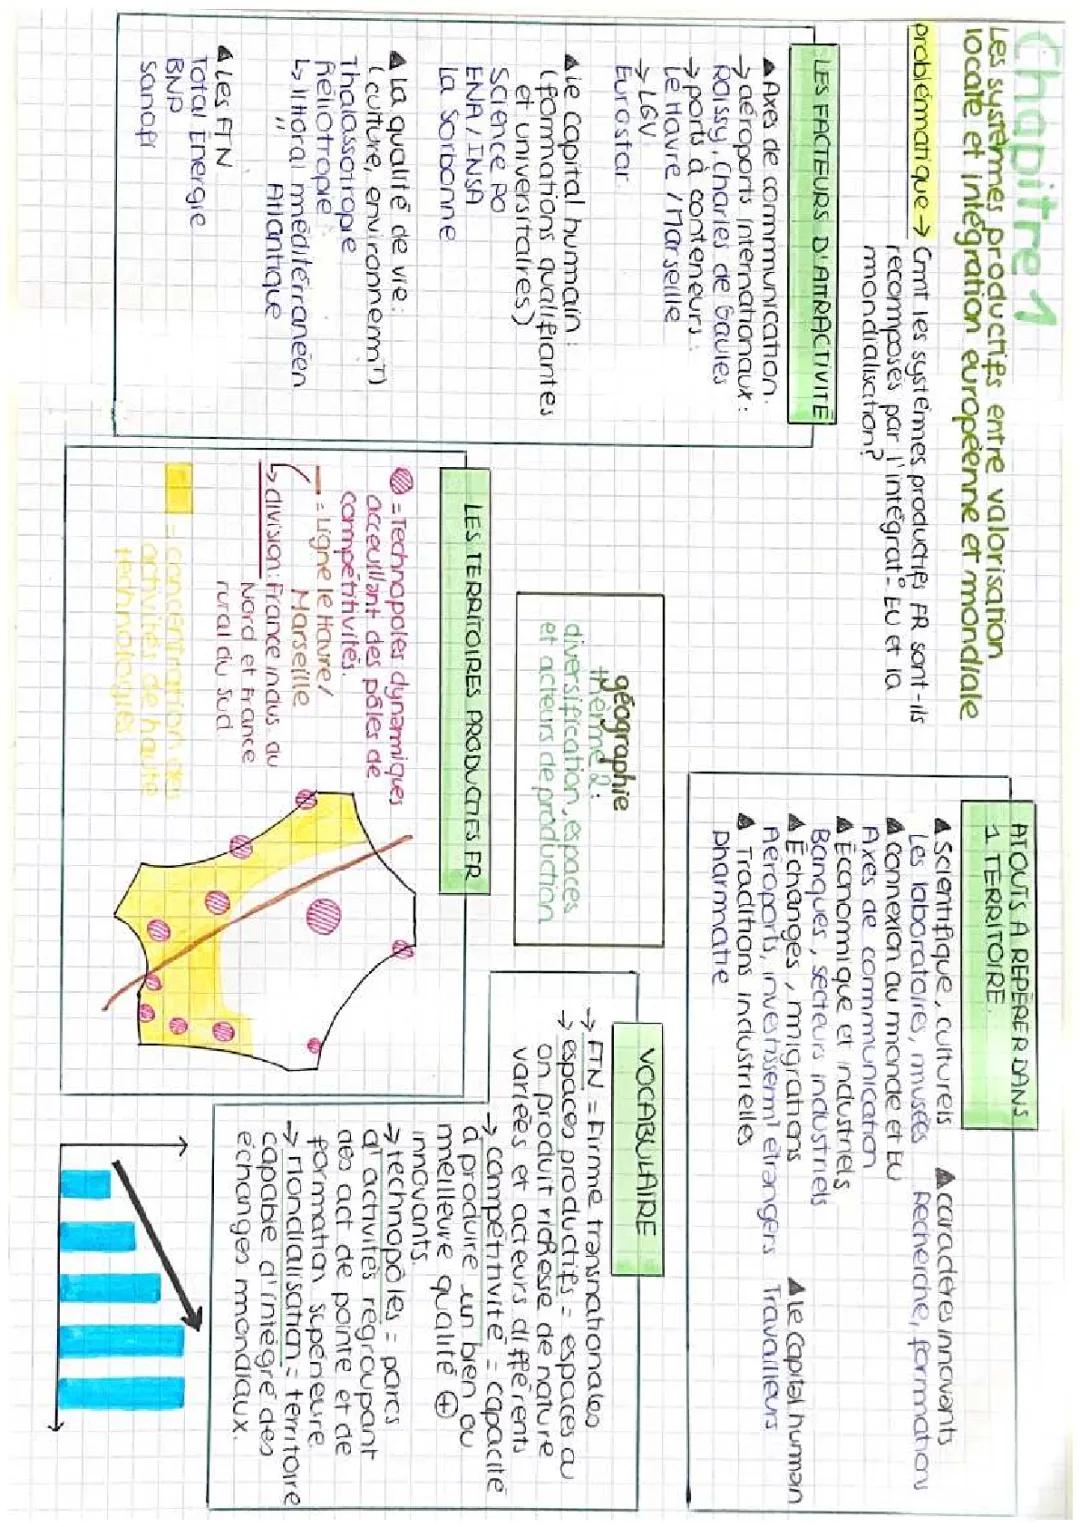 Chapitre 1
Les systèmes productifs entre valorisation
locale et intégration européenne et mondiale
problématique → Cmt les systèmes productifs FR sont-ils
recomposés par l'intégrat° EU et la
mondialisation?
LES FACTEURS D'ATTRACTIVITÉ
▲ Axes de communication.
→ aéroports internationaux:
Roissy, Charles de Gaules
→ ports à conteneurs:
Le Havre / Marseille
→ LGV
Eurostar
▲ Le capital humain:
(formations qualifiantes
et universitaires)
Science PO
ENA / INSA
La Sorbonne
▲ La qualité de vie:
(culture, environnemt)
Thalassotropie
Héliotropie
↳ littoral méditérranéen
" Atlantique
▲ Les FTN
Total Energie
BNP
Sanofi
géographie
thème 2:
diversification, espaces
et acteurs de production
ATOUTS A REPÉRER DANS
1 TERRITOIRE
▲ Scientifique, culturels
Les laboratoires, musées
▲ connexion au monde et EU
Axes de communication
▲ Économique et industriels
Banques, secteurs industriels
▲ Échanges, migrations
Aéroports, investissemt étrangers
▲ Traditions industrielles
pharmatie
▲ caractères innovants
Recherche, formations
▲ Le capital humain
Travailleurs
LES TERRITOIRES PRODUCTIFS FR
= Technopoles dynamiques
acceuillant des pôles de
compétitivités.
= Ligne le Havre/
Marseille
↳ division: France indus. au
Nord et France
rural du Sud
= concentration des
activités de haute
technologies
VOCABULAIRE
→ FTN = Firme transnationales
→ espaces productifs = espaces où
on produit richesse de nature
variées et acteurs différents
→ compétitivité = capacité
à produire un bien ou
meilleure qualité ⊕
innovants.
→ technopôles = parcs
d'activités regroupant
des act de pointe et de
formation supérieure.
→ Mondialisation = territoire
capable d'intégré des
échanges mondiaux.